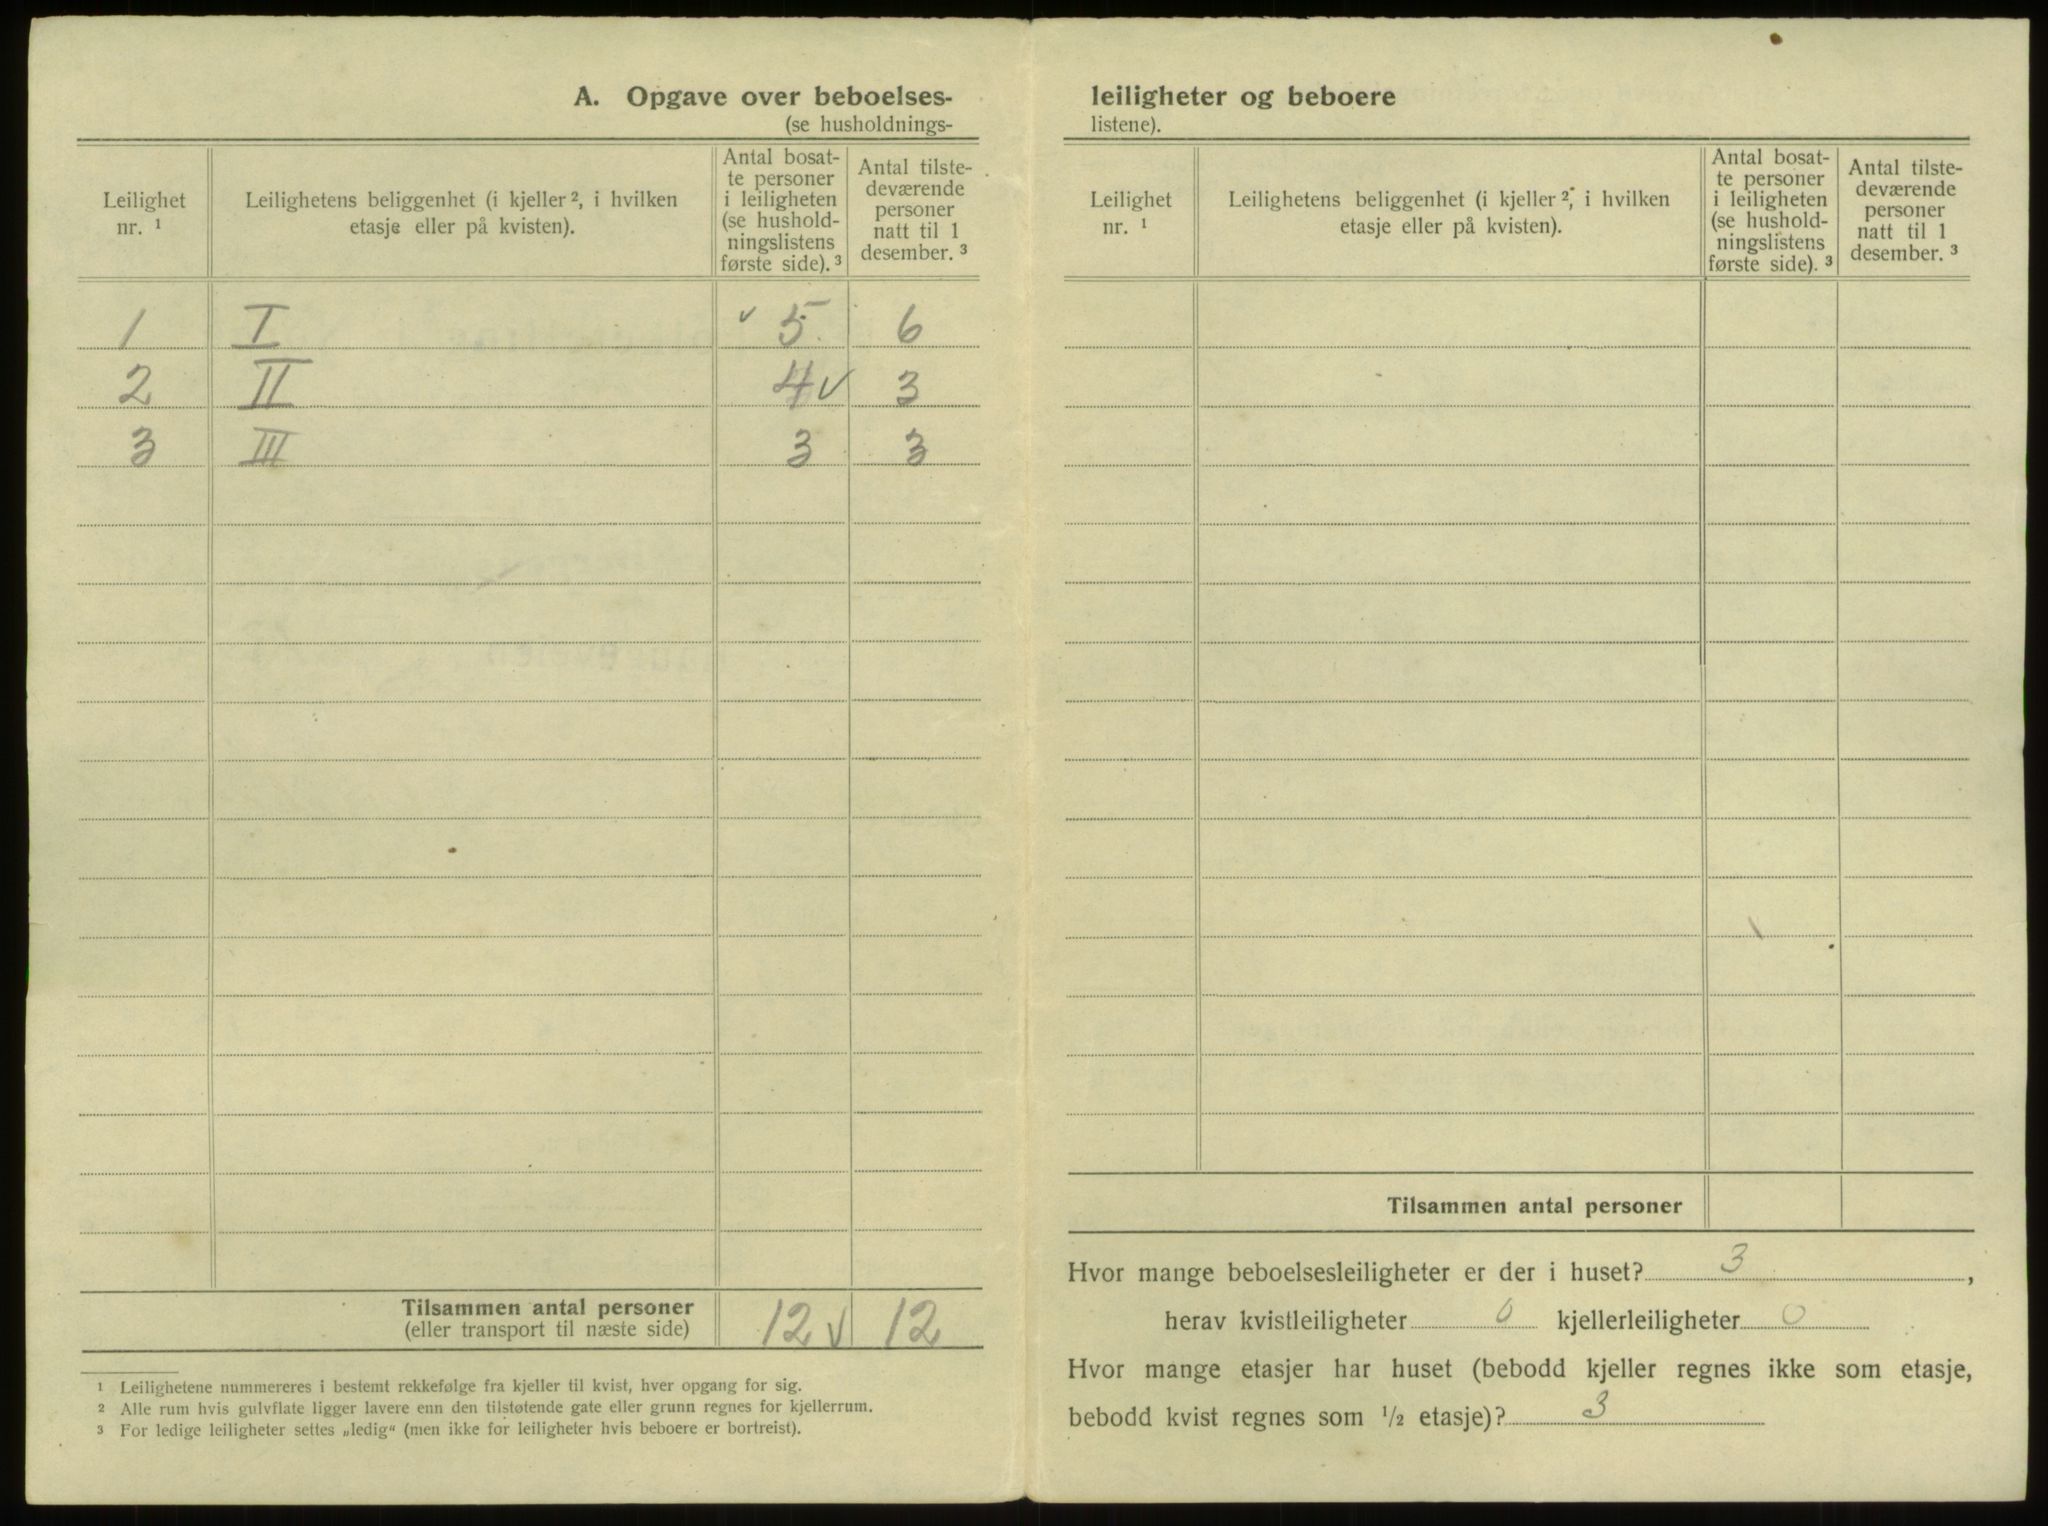 A. Opgave over beboelses-
(se husholdnings-
Leilighet nr. 1
Leilighetens beliggenhet (i kjeller 2, i hvilken etasje eller på kvisten).
Antal bosat-
te personer
i leiligheten
(se hushold-
ningslistens
første side). 3
Antal tilste-
deværende
personer
natt til 1
desember. 3
1 I √ 5. 6
2 II 4 √ 3
3 III 3 3
Tilsammen antal personer
(eller transport til næste side)
12 √ 12
1 Leilighetene nummereres i bestemt rekkefølge fra kjeller til kvist, hver opgang for sig.
2 Alle rum hvis gulvflate ligger lavere enn den tilstøtende gate eller grunn regnes for kjellerrum.
3 For ledige leiligheter settes „ledig“ (men ikke for leiligheter hvis beboere er bortreist).
leiligheter og beboere
listene).
Leilighet nr. 1
Leilighetens beliggenhet (i kjeller 2, i hvilken etasje eller på kvisten).
Antal bosat-
te personer
i leiligheten
(se hushold-
ningslistens
første side). 3
Antal tilste-
deværende
personer
natt til 1
desember. 3
Tilsammen antal personer
Hvor mange beboelsesleiligheter er der i huset? 3,
herav kvistleiligheter 0 kjellerleiligheter 0
Hvor mange etasjer har huset (bebodd kjeller regnes ikke som etasje,
bebodd kvist regnes som 1/2 etasje)? 3